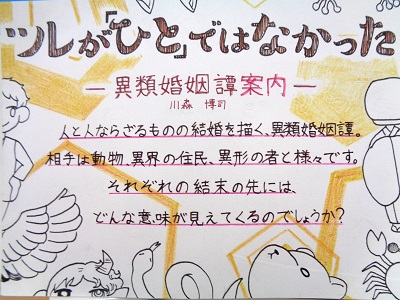 ツレが「ひと」ではなかった
―異類婚姻譚案内―
川森 博司
人と人ならざるものの結婚を描く、異類婚姻譚。
相手は動物、異界の住民、異形の者と様々です。
それぞれの結末の先には、
どんな意味が見えてくるのでしょうか?